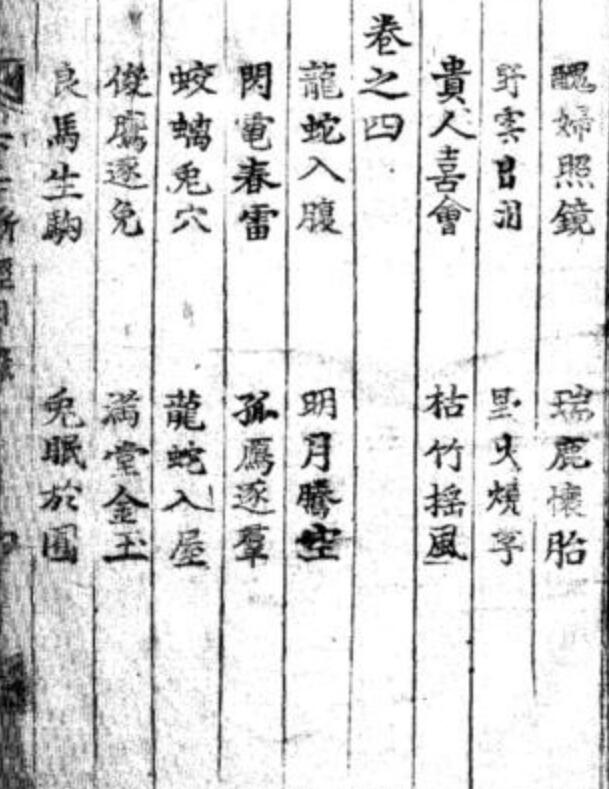 醜婦照鏡 瑞鹿懷胎
野雲出 火
貴人喜會 枯竹搖風
卷之四
龍蛇入腹 明月騰空
閃電春雷 孤鴈逐羣
蛟螭兎穴 龍蛇入屋
俊鷹逐兎 滿堂金玉
良馬生駒 兎眠於園